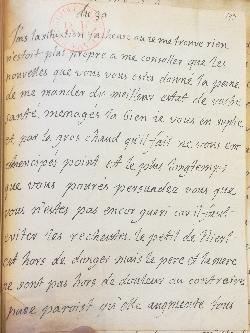 du 30
dans la situation fascheuse ou ie me trouve rien
n'estoit plus propre a me consoler que les
nouvelles que vous vous estes donné la peine
de me mander du meilleur estat de vostre
santé, menagés la bien ie vous en suplie
et par le gros chaud qu'il fait ne vous en
point et le plus longtemps
que vous pourés persuadez vous que
vous n'estes pas encor gueri car il faut
eviter les recheutes. le petit de
est hors de danger mais le pere et la mere
ne sont pas hors de douleur au contraire
paroist qu'elle augmente tous